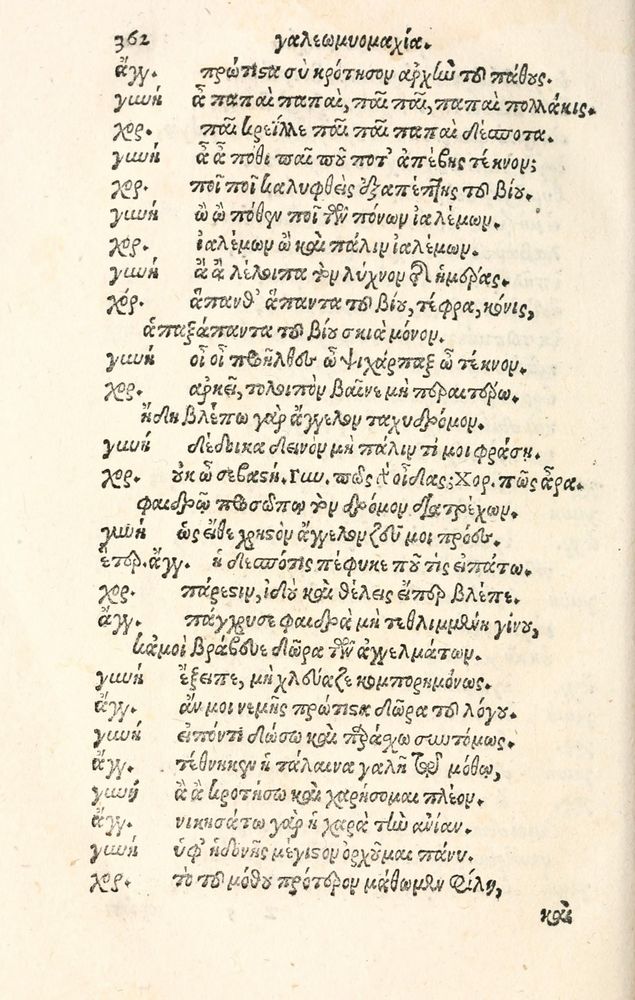 362 γαλεωμυομαχία.
ἄγγ. πρώτιστα συγκρότησον ἀρχὴν τοῦ πάθους.
γυνή ἆ παπαῖ παπαῖ, παῖ παῖ, παπαῖ πολλάκις.
χορ. παῖ Κρείλλε παῖ παῖ παπαῖ δέσποτα.
γυνή ἆ ἆ πόθι παῖ ποῦ ποτ' ἀπέβης τέκνον;
χορ. ποῖ ποῖ καλυφθεὶς ἐξαπέπτης τοῦ βίου.
γυνή ὢ ὢ πόθεν ποῖ τῶν πόνων ἰαλέμων.
χορ. ἰαλέμων ὢ καὶ πάλιν ἰαλέμων.
γυνή ἆ ἆ λέλοιπα τὸν λύχνον τῆς ἡμέρας.
χόρ. ἅπανθ' ἅπαντα τοῦ βίου, τέφρα, κόνις,
ἁπαξάπαντα τοῦ βίου σκιὰ μόνον.
γυνή οἶ οἶ προῆλθες ὦ ψιχάρπαξ ὦ τέκνον.
χορ. ἀρκεῖ, τολοιπὸν βαῖνε μὴ περαιτέρω.
ἤδη βλέπω γὰρ ἄγγελον ταχυδρόμον.
γυνή δέδοικα δεινὸν μὴ πάλιν τί μοι φράσῃ.
χορ. οὐκ ὦ σεβαστή. Γυν. πῶς οἶδας; Χορ. πῶς ἆρα.
φαιδρῷ προσώπῳ τὸν δρόμον διατρέχων.
γυνή ὡς εἴθε χρηστὸν ἄγγελον ζοῦ μοι πρόες.
ἕτερ. ἄγγ. ἡ δεσπότις πέφυκε ποῦ τὶς εἰπάτω.
χορ. πάρεστιν, ἰδοὺ καὶ θέλεις εἴπερ βλέπε.
ἄγγ. πάγχρυσε φαιδρὰ μὴ τεθλιμμένη γίνου,
κἀμοὶ βράβευε δῶρα τῶν ἀγγελμάτων.
γυνή ἔξειπε, μὴ χλεύαζε κομπορημόνως.
ἄγγ. ἄν μοι νεμῇς πρώτιστα δῶρα τοῦ λόγου.
γυνή εἰπόντι δώσω καὶ παράσχω συντόμως.
ἄγγ. τέθνηκεν ἡ τάλαινα γαλῆ τῷ μόθῳ,
γυνή ἆ ἆ κροτήσω καὶ χαρήσομαι πλέον.
ἄγγ. νικησάτω γὰρ ἡ χαρὰ τὴν ἀνίαν.
γυνή ὑφ' ἡδονῆς μέγιστον ὀρχοῦμαι πάνυ.
χορ. τὸ τοῦ μόθου πρότερον μάθωμεν φίλη,
καὶ